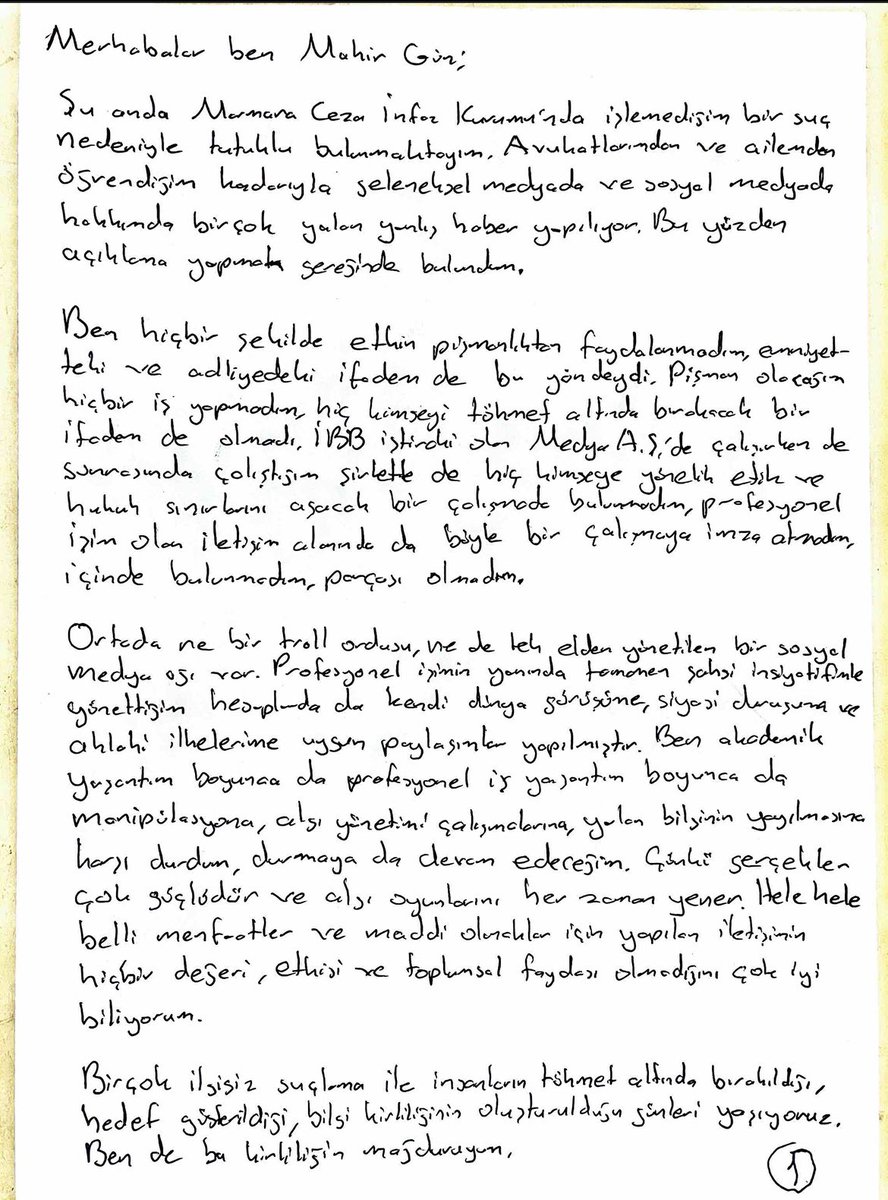 Merhabalar ben Mahir Gün;
Şu anda Marmara Ceza İnfaz Kurumu'nda işlemediğim bir suç
nedeniyle tutuklu bulunmaktayım. Avukatlarımdan ve ailemden
öğrendiğim kadarıyla geleneksel medyada ve sosyal medyada
hakkımda birçok yalan yanlış haber yapılıyor. Bu yüzden
açıklama yapmak gereğinde bulundum.
Ben hiçbir şekilde etkin pişmanlıktan faydalanmadım, emniyet-
teki ve adliyedeki ifadem de bu yöndeydi. Pişman olacağım
hiçbir iş yapmadım, hiç kimseyi töhmet altında bırakacak bir
ifadem de olmadı. İBB iştiraki olan Medya A.Ş.'de çalışırken de
sonrasında çalıştığım şirkette de hiç kimseye yönelik etik ve
hukuk sınırlarını aşacak bir çalışmada bulunmadım, profesyonel
işim olan iletişim alanında da böyle bir çalışmaya imza atmadım,
içinde bulunmadım, parçası olmadım.
Ortada ne bir troll ordusu, ne de tek elden yönetilen bir sosyal
medya ağı var. Profesyonel işimin yanında tamamen şahsi insiyatifimle
yönettiğim hesaplarda da kendi dünya görüşüme, siyasi duruşuma ve
ahlaki ilkelerime uygun paylaşımlar yapılmıştır. Ben akademik
yaşantım boyunca da profesyonel iş yaşantım boyunca da
manipülasyona, algı yönetimi çalışmalarına, yalan bilginin yayılmasına
karşı durdum, durmaya da devam edeceğim. Çünkü gerçekler
çok güçlüdür ve algı oyunlarını her zaman yener. Hele hele
belli menfaatler ve maddi olanaklar için yapılan iletişimin
hiçbir değeri, etkisi ve toplumsal faydası olmadığını çok iyi
biliyorum.
Birçok ilgisiz suçlama ile insanların töhmet altında bırakıldığı,
hedef gösterildiği, bilgi kirliliğinin oluşturulduğu günleri yaşıyoruz.
Ben de bu kirliliğin mağduruyum.
1